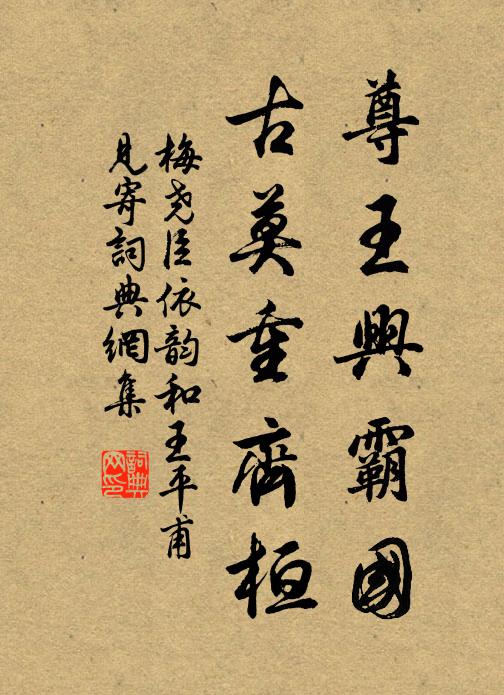 尊王興霸國
古莫重齊桓
梅尧臣依韵和王平甫
見寄詞典網集
詞典
网印